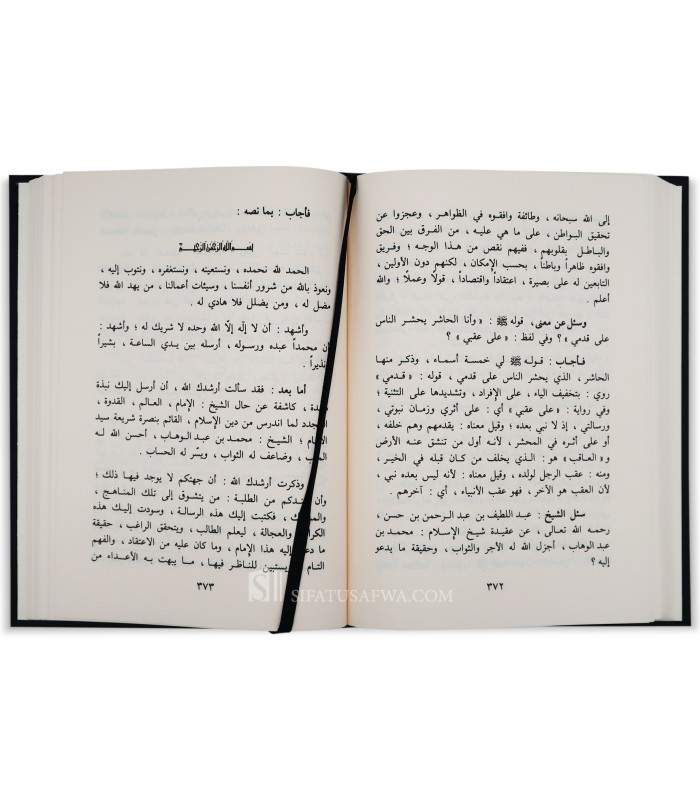 إلى الله سبحانه ، وطائفة وافقوه في الظواهر ، وعجزوا عن
تحقيق البواطن ، على ما هي عليه ، من الفرق بين الحق
والباطل بقلوبهم ، ففيهم نقص من هذا الوجه ؛ وفريق
وافقوه ظاهراً وباطناً ، بحسب الإمكان ، لكنهم دون الأولين ،
التابعين له على بصيرة ، اعتقاداً واقتصاداً ، قولاً وعملاً ؛ والله
أعلم .
وسئل عن معنى، قوله ﷺ : « وأنا الحاشر يحشر الناس
على قدمي » ؟ وفي لفظ : « على عقبي » ؟
فأجاب : قوله ﷺ لي خمسة أسماء ، وذكر منها
الحاشر ، الذي يحشر الناس على قدمي ، قوله : « قدمي »
روي : بتخفيف الياء ، على الإفراد ، وتشديدها على التثنية ؛
وفي رواية : « على عقبي » أي : على أثري وزمان نبوتي ،
ورسالتي ، إذ لا نبي بعده ؛ وقيل معناه : يقدمهم وهم خلفه ،
أو على أثره في المحشر ، لأنه أول من تنشق عنه الأرض
و « العاقب » هو : الذي يخلف من كان قبله في الخير ،
ومنه : عقب الرجل لولده ، وقيل معناه : لأنه ليس بعده نبي ،
لأن العقب هو الآخر ، فهو عقب الأنبياء ، أي : آخرهم .
سئل الشيخ : عبد اللطيف بن عبد الرحمن بن حسن ،
رحمه الله تعالى ، عن عقيدة شيخ الإسلام : محمد بن
عبد الوهاب ، أجزل الله له الأجر والثواب ، وحقيقة ما يدعو
إليه ؟
٣٧٢
فأجاب : بما نصه :
بسم الله الرحمن الرحيم
الحمد لله نحمده ، ونستعينه ، ونستغفره ، ونتوب إليه ،
ونعوذ بالله من شرور أنفسنا ، وسيئات أعمالنا ، من يهد الله فلا
مضل له ، ومن يضلل فلا هادي له .
وأشهد : أن لا إله إلا الله وحده لا شريك له ؛ وأشهد :
أن محمداً عبده ورسوله ، أرسله بين يدي الساعة ، بشيراً
نذيراً .
أما بعد : فقد سألت أرشدك الله ، أن أرسل إليك نبذة
كاشفة عن حال الشيخ : الإمام ، العالم ، القدوة ،
المجدد لما اندرس من دين الإسلام ، القائم بنصرة شريعة سيد
الأنام ؛ الشيخ : محمد بن عبد الوهاب ، أحسن الله له
المآب ، وضاعف له الثواب ، ويسّر له الحساب .
وذكرت أرشدك الله : أن جهتكم لا يوجد فيها ذلك ؛
وأن عندكم من الطلبة : من يتشوق إلى تلك المناهج ،
فكتبت إليك هذه الرسالة ، وسودت إليك هذه
الكراسة والعجالة ، ليعلم الطالب ، ويتحقق الراغب ، حقيقة
ما دعى إليه هذا الإمام ، وما كان عليه من الاعتقاد ، والفهم
التام ؛ ويستبين للناظر فيها ، ما يبهت به الأعداء من
٣٧٣
SIFATUSAFWA.COM